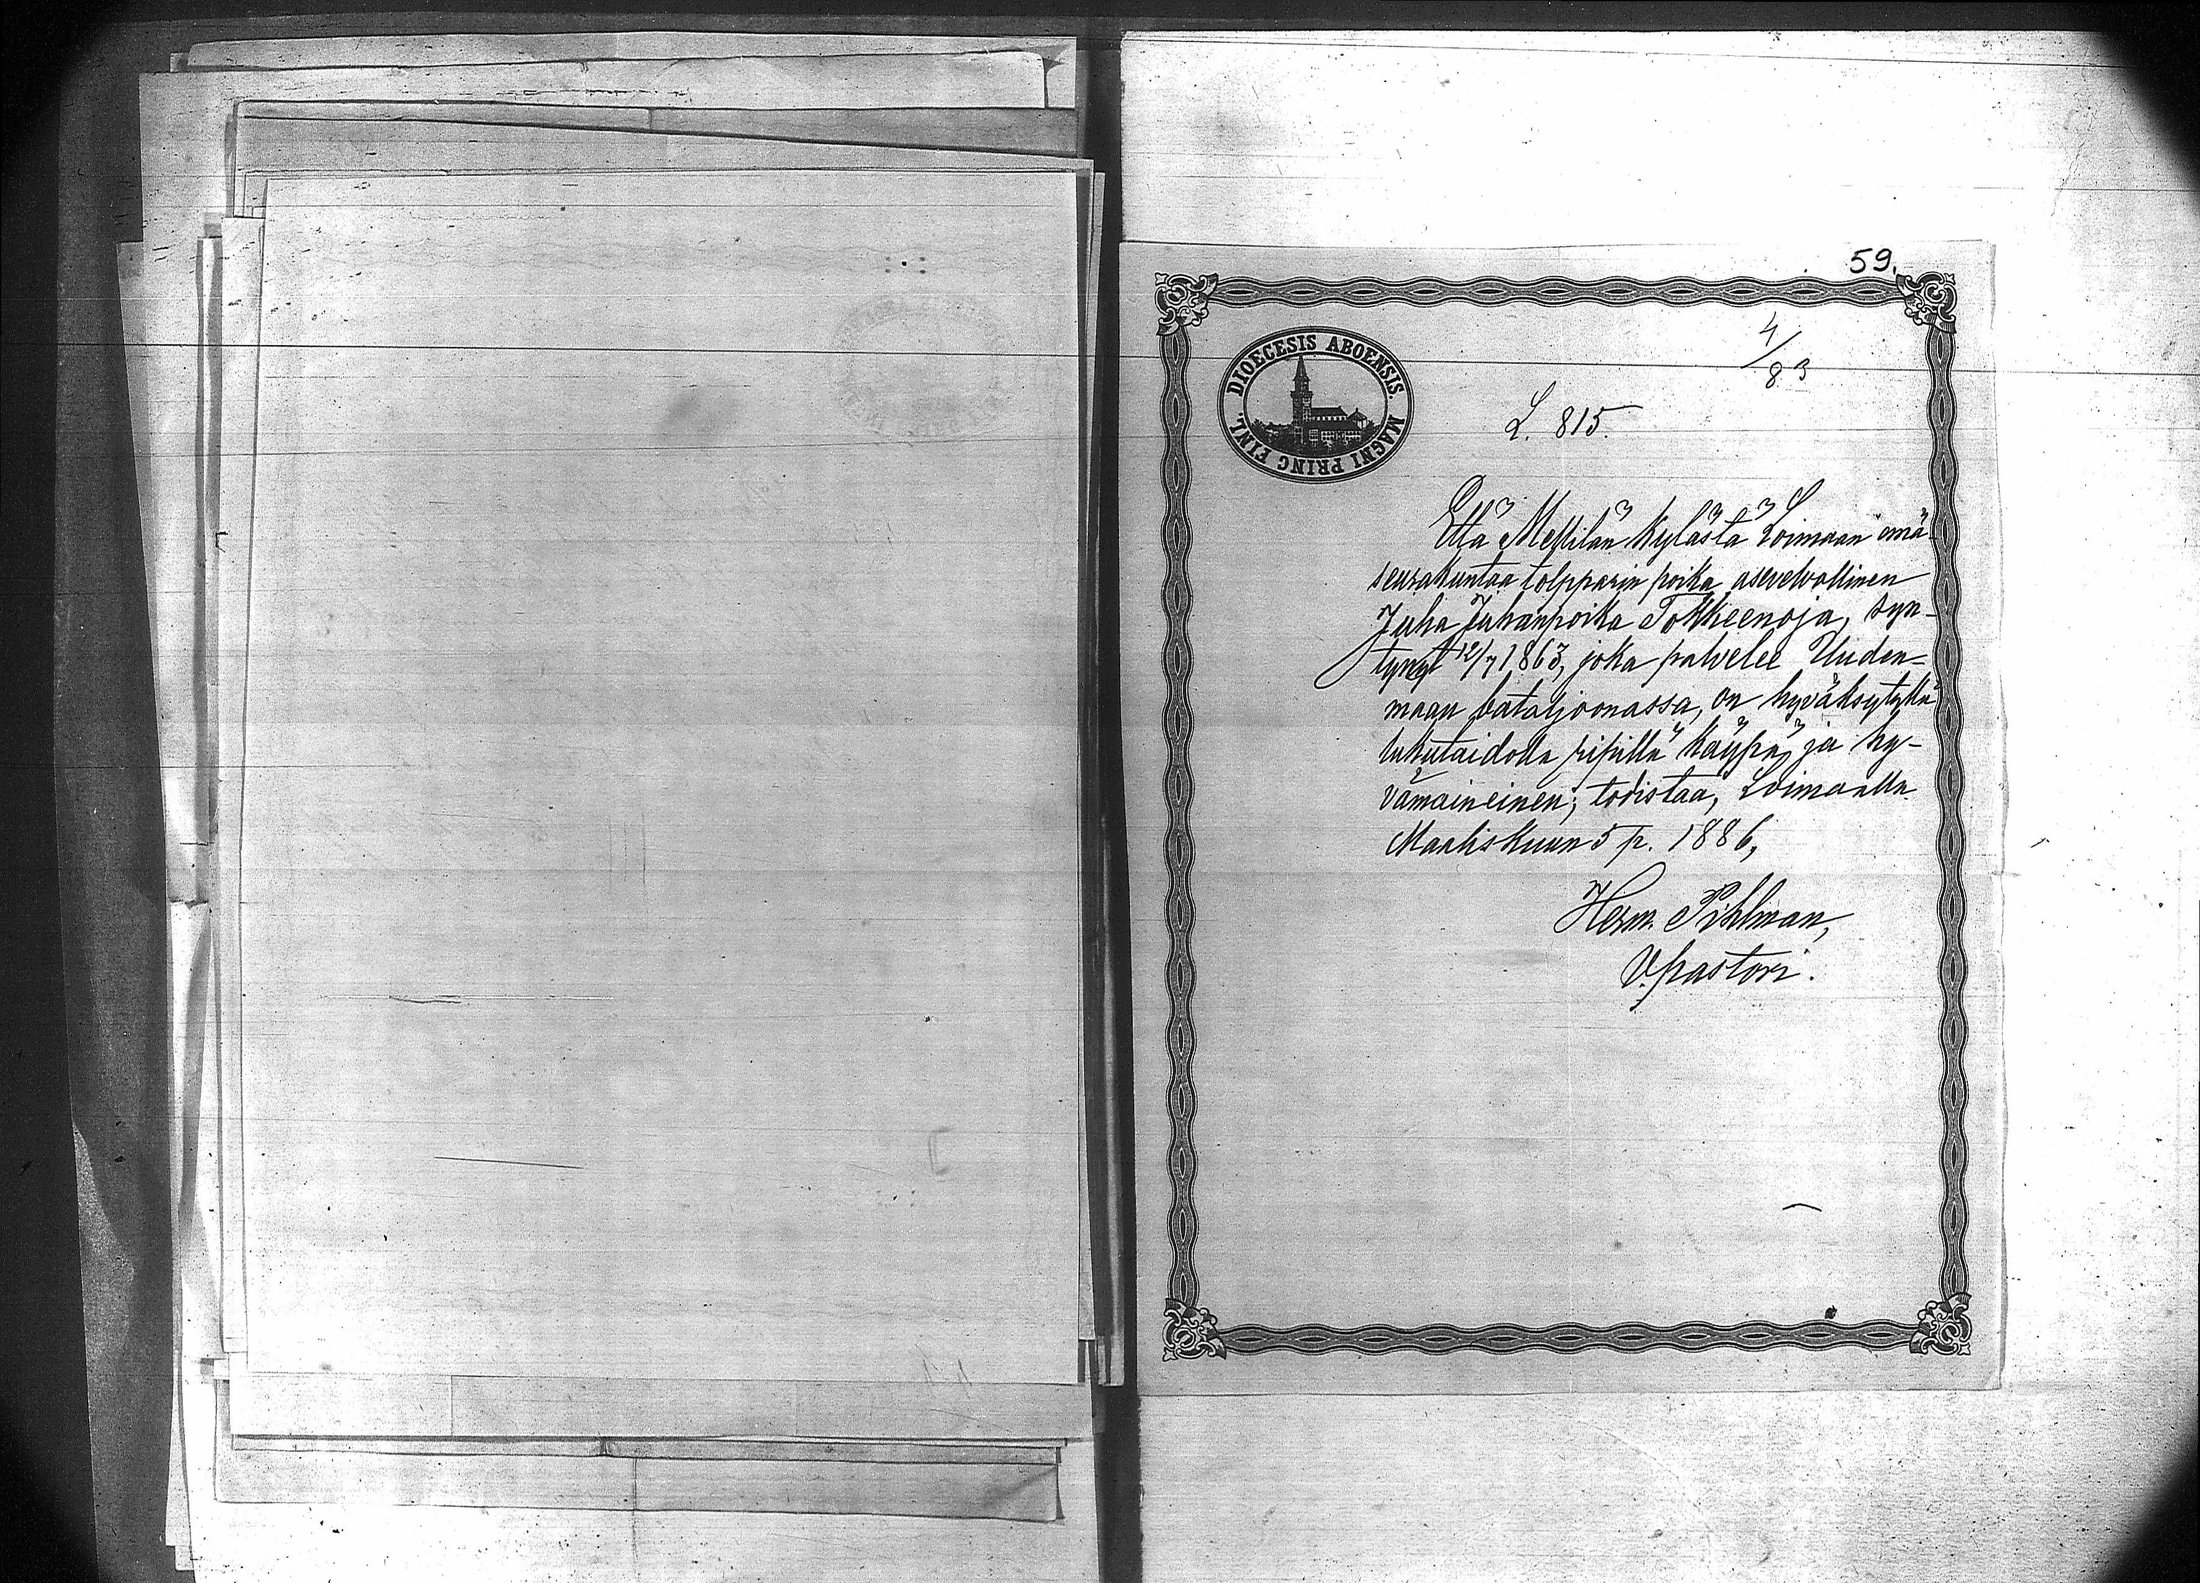 59.
4/83
DIOECESIS ABOENSIS. MAGNI PRINC FINL.
L. 815.
Että Mellilän kylästä Loimaan emä
seurakuntaa tolpparin poika asevelvollinen
Juha Juhanpoika Tokkeenoja, syn-
tynyt 12/7 1863, joka palvelee Uuden-
maan bataljoonassa, on hyväksytyllä
lukutaidolla ripillä käypä, ja hy-
vämaineinen; todistaa, Loimaalla
Maaliskuun 5 p. 1886,
Herm. Pihlman,
V. pastori.